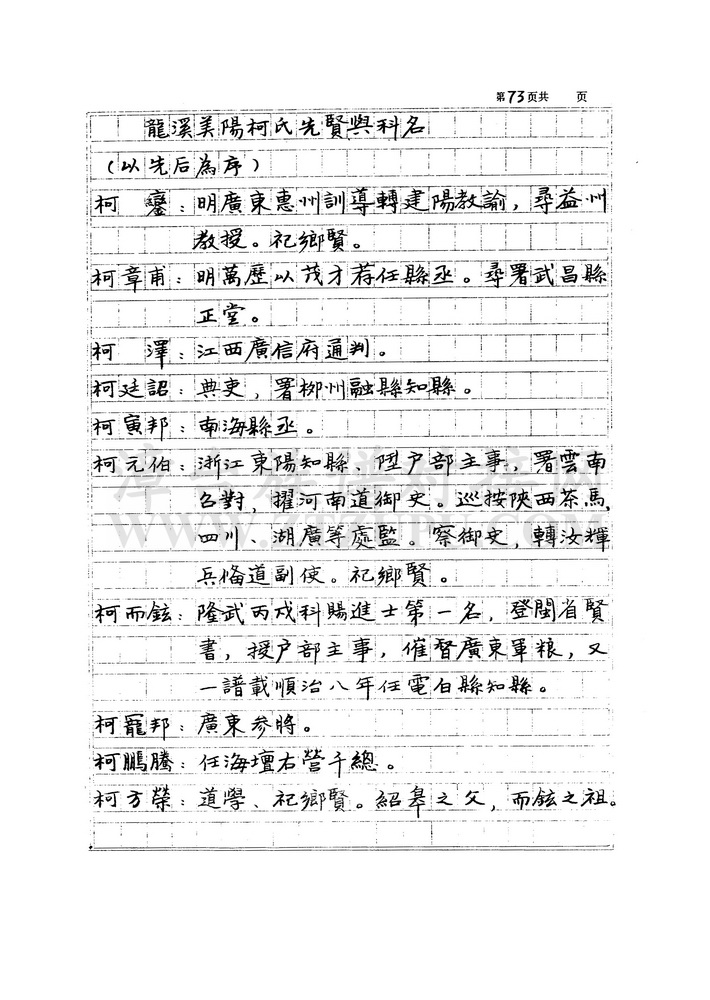 第73页共　　页
龍溪美陽柯氏先賢與科名
(以先后為序)
柯　鑾：明廣東惠州訓導轉建陽教諭，尋益州
教授。祀鄉賢。
柯章甫：明萬歷以茂才荐任縣丞。尋署武昌縣
正堂。
柯　澤：江西廣信府通判。
柯廷詔：典吏，署栁州融縣知縣。
柯寅邦：南海縣丞。
柯元伯：浙江東陽知縣、陞户部主事，署雲南
召對，擢河南道御史。巡按陝西茶馬，
四川、湖廣等處監。察御史，轉汝輝
兵俻道副使。祀鄉賢。
柯而鉉：隆武丙戌科賜進士第一名，登閩省賢
書，授户部主事，催督廣東軍粮，又
一譜載順治八年任電白縣知縣。
柯罷邦：廣東参將。
柯鵬騰：任海壇右營千總。
柯方榮：道學、祀鄉賢。紹皋之父，而鉉之祖。